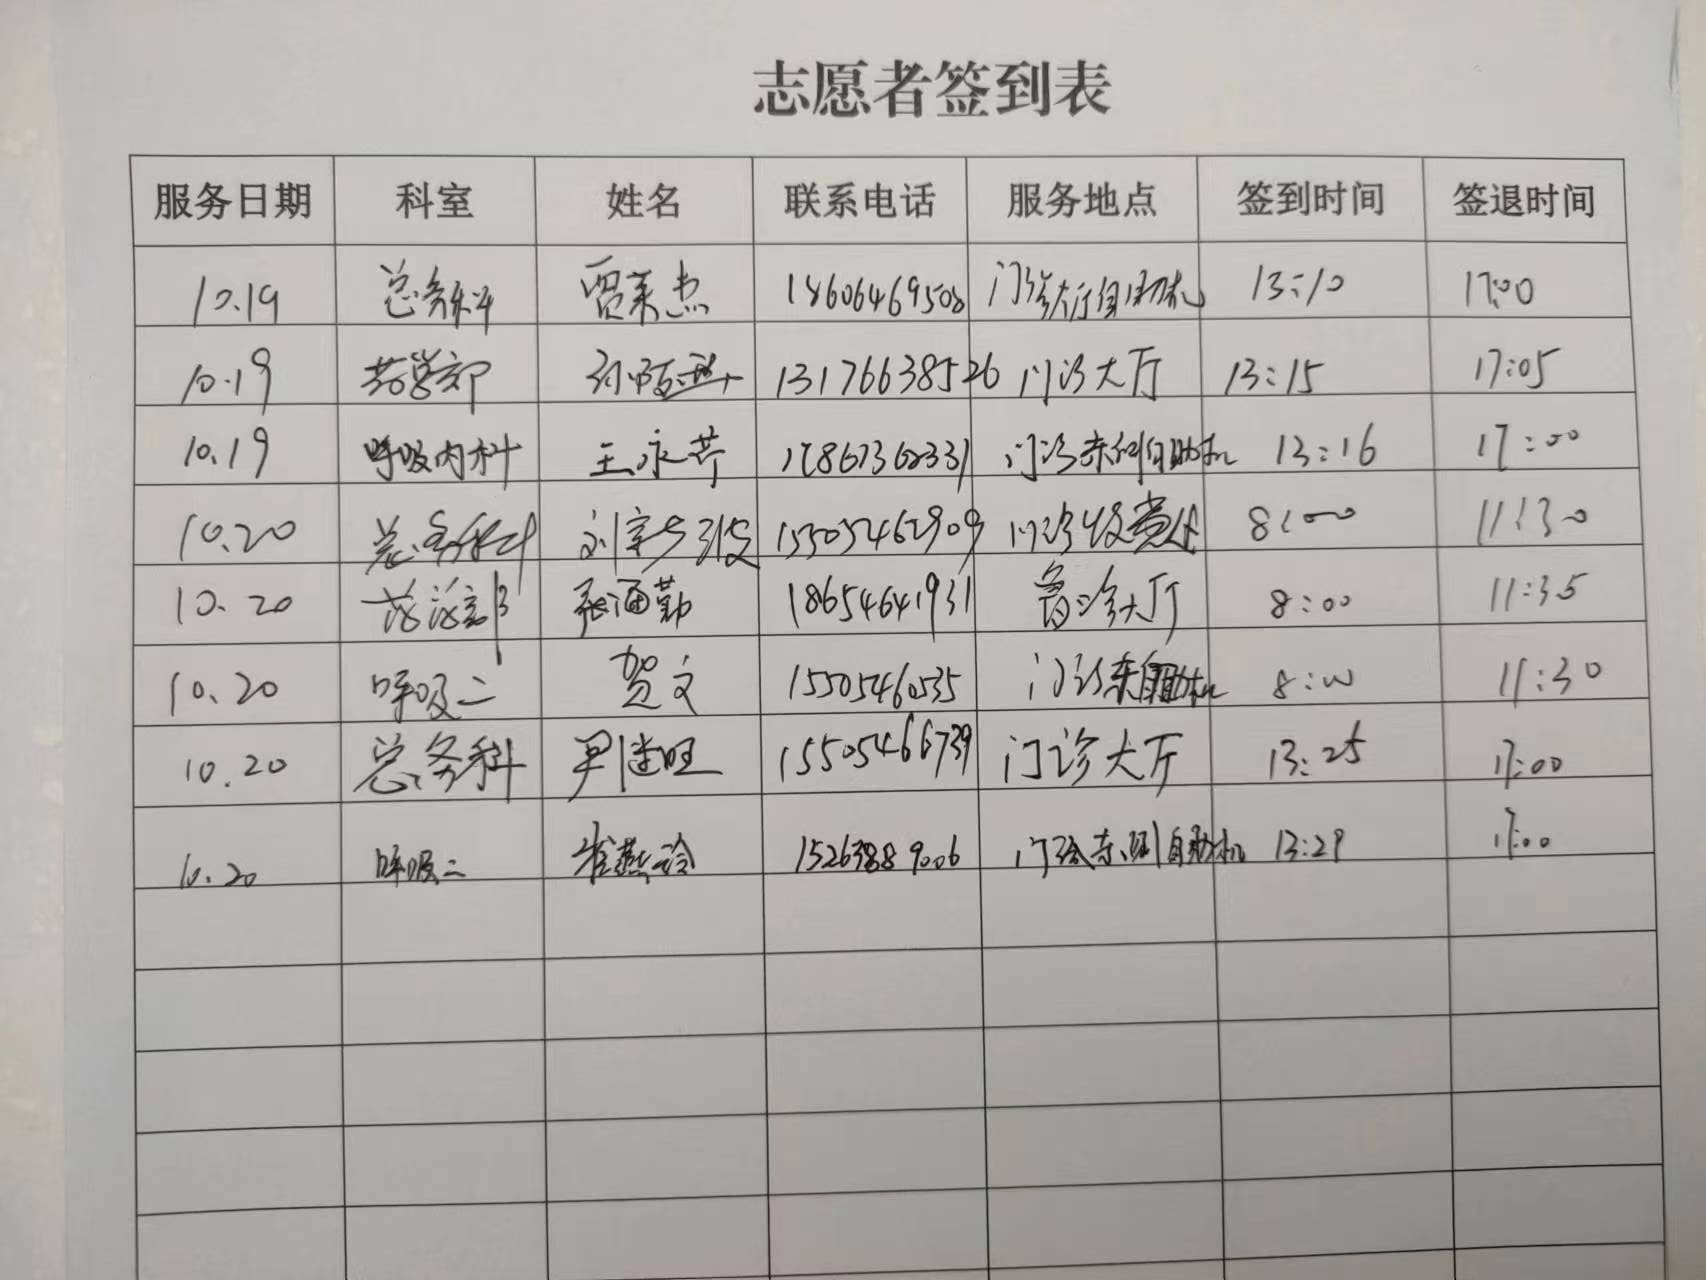 志愿者签到表
服务日期 科室 姓名 联系电话 服务地点 签到时间 签退时间
10.19 总务科 贾莱杰 18606469508 门诊大厅自助机 13:10 17:00
10.19 药学部 13176638526 门诊大厅 13:15 17:05
10.19 呼吸内科 王永芹 门诊东侧自助机 13:16 17:00
10.20 总务科 15505462909 门诊收费处 8:00 11:30
10.20 张通勤 18654641931 诊大厅 8:00 11:35
10.20 呼吸二 贺文 15505460535 门诊东自助机 8:00 11:30
10.20 总务科 15505466739 门诊大厅 13:25 17:00
10.20 呼吸二 崔燕玲 15263889006 门诊东侧自助机 13:29 17:00